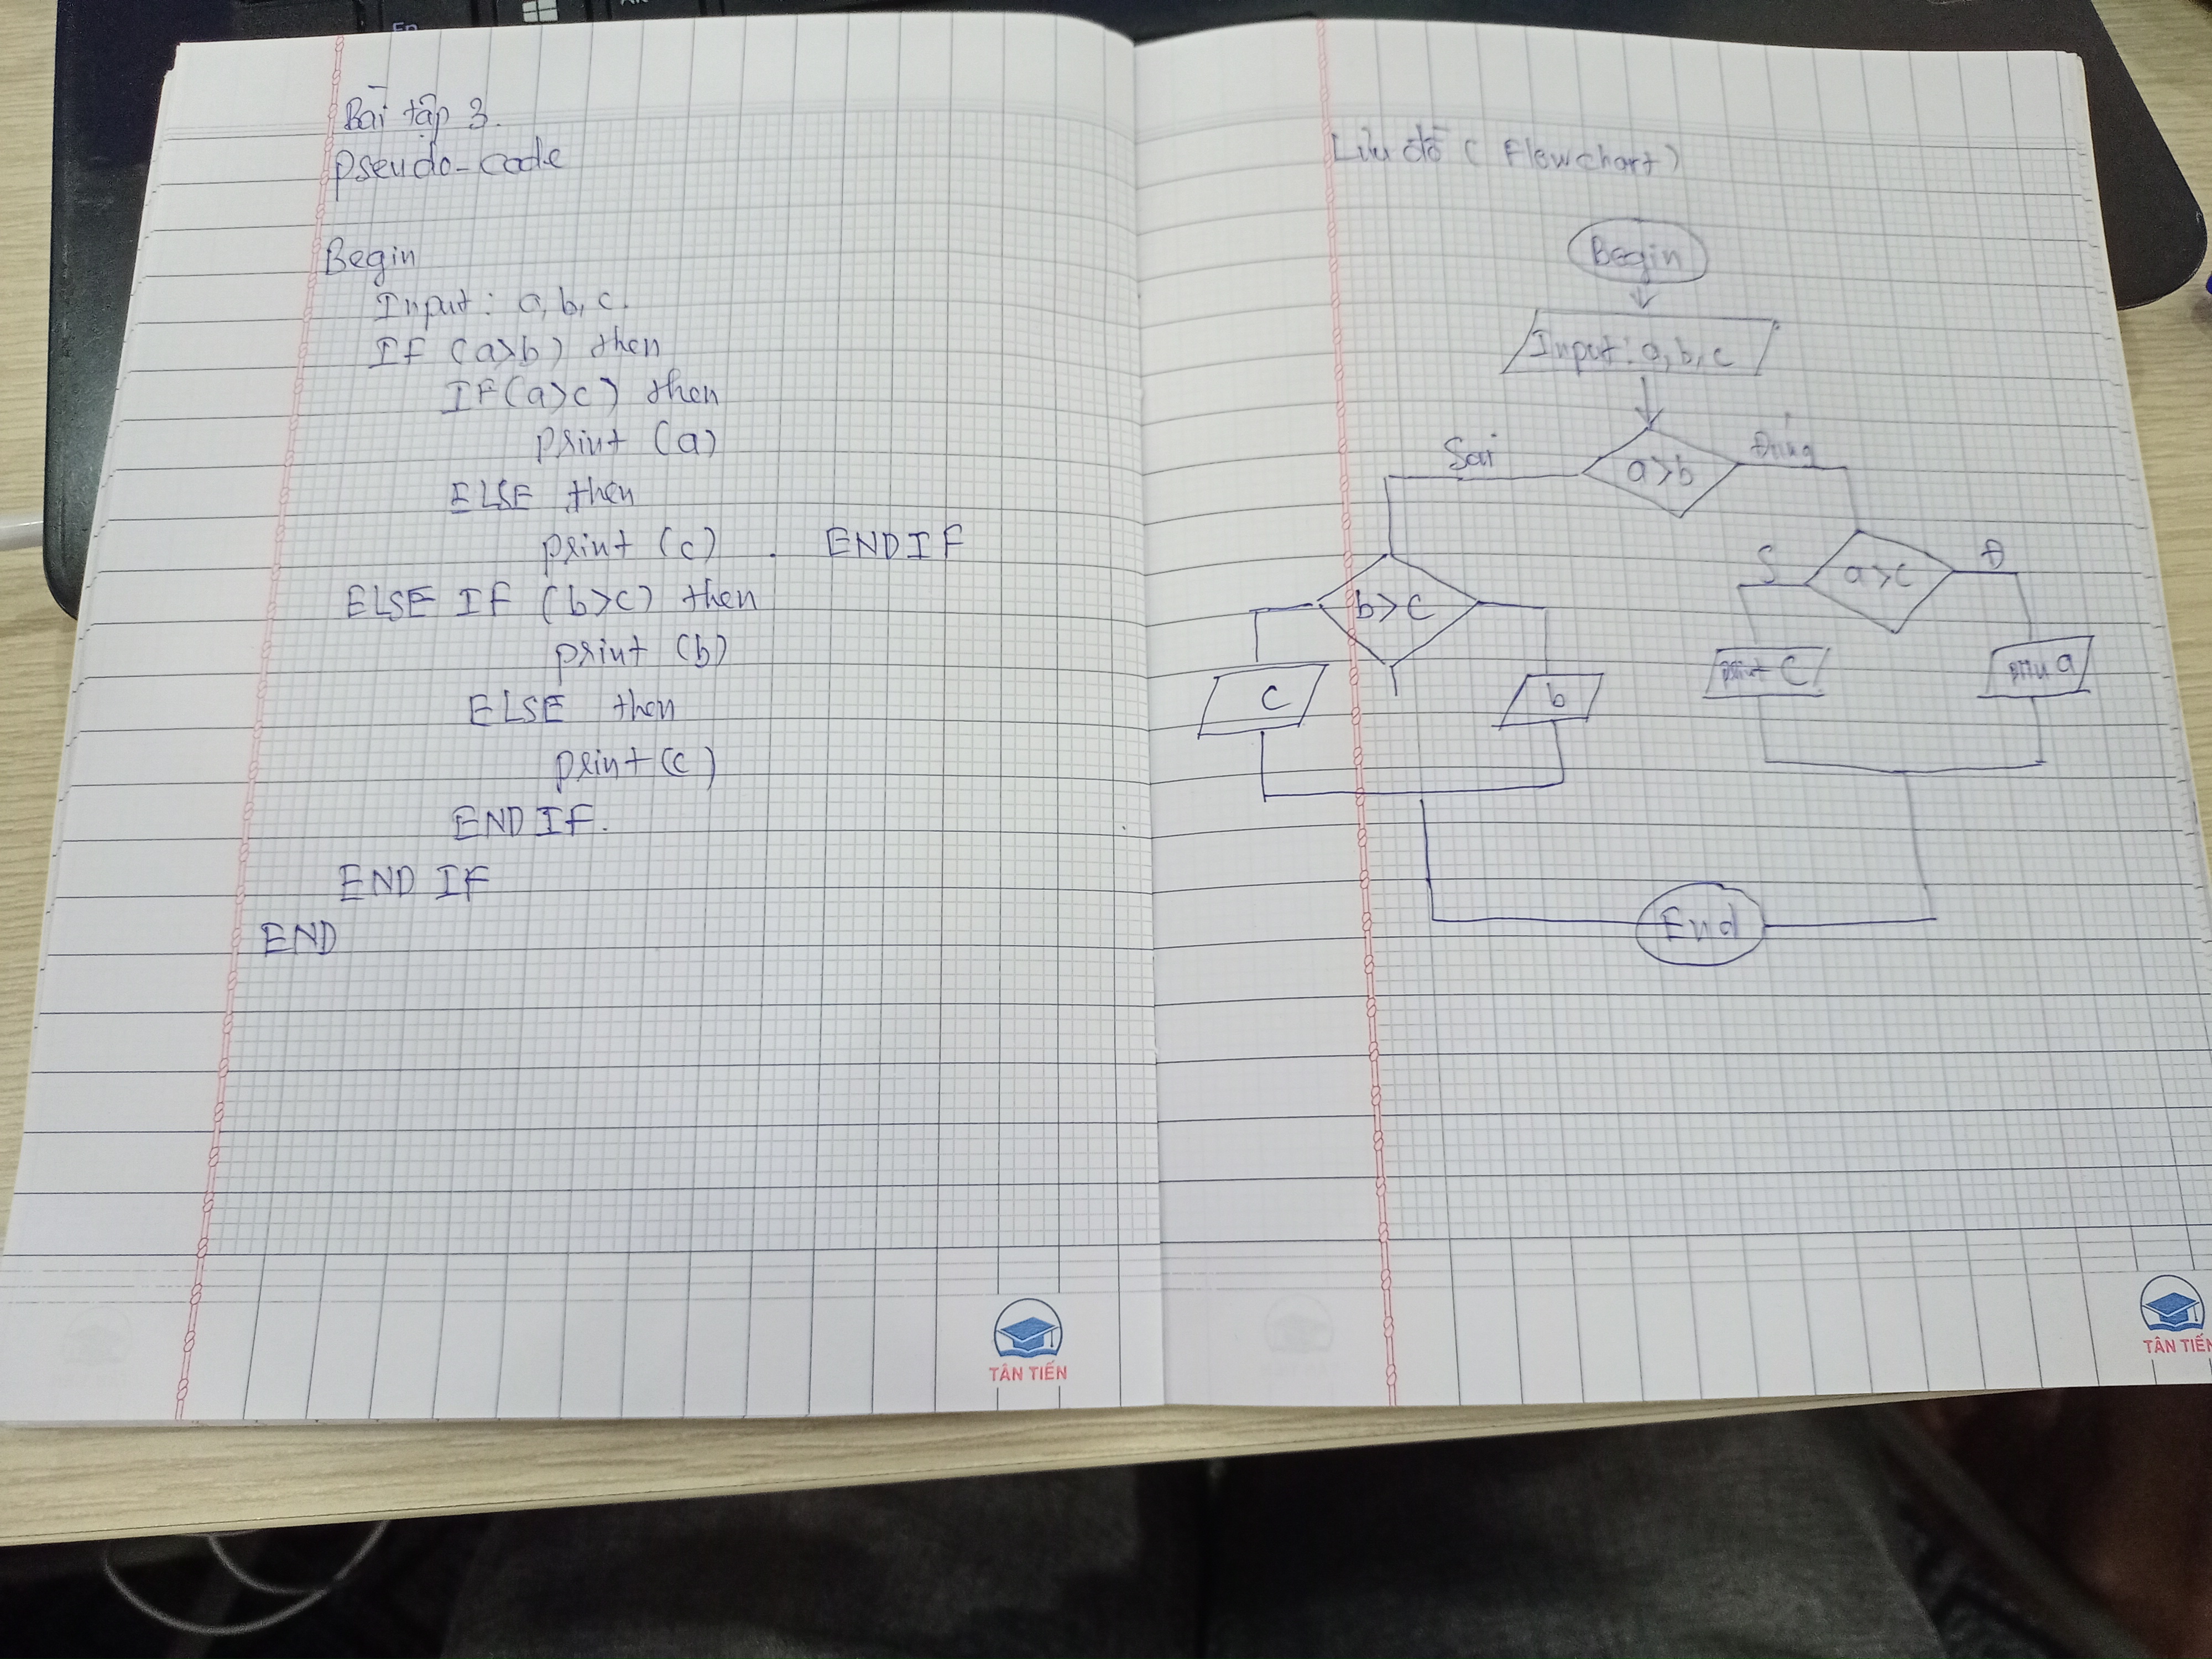 Bài tập 3.
pseudo-code
Begin
Input: a, b, c.
IF (a>b) then
IF (a>c) then
print (a)
ELSE then
print (c) . ENDIF
ELSE IF (b>c) then
print (b)
ELSE then
print (c)
END IF.
END IF
END
TÂN TIẾN
Lưu đồ (Flowchart)
Begin
Input: a, b, c
Sai a>b Đúng
S a>c Đ
b>c
print C print a
c b
End
TÂN TIẾN